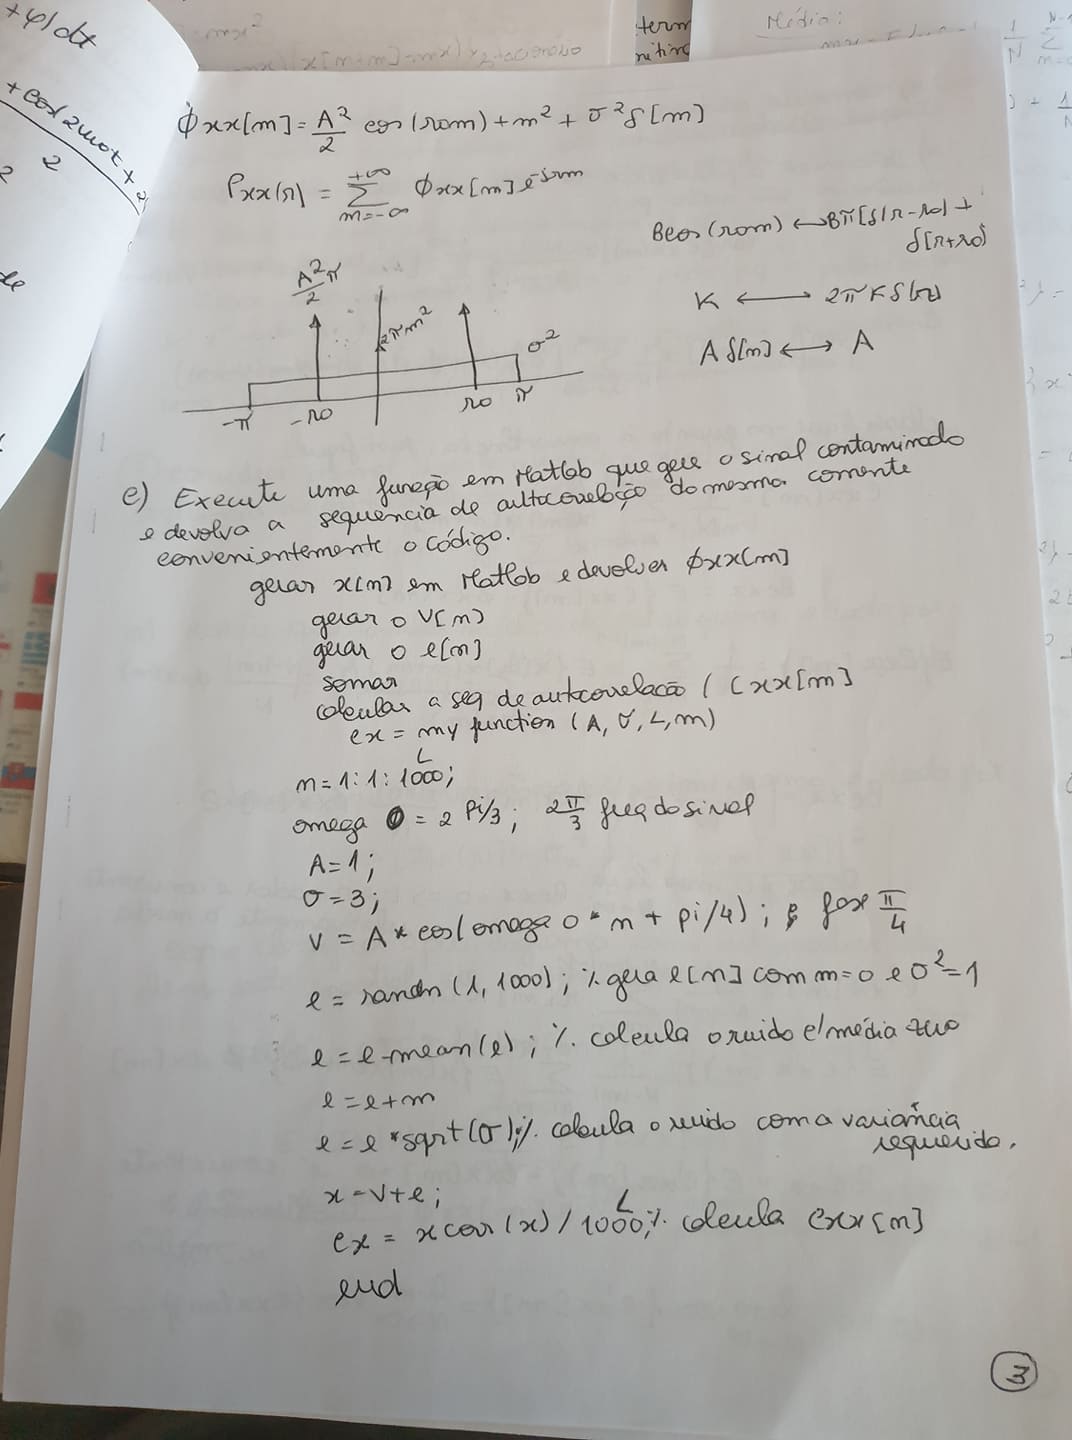 +φ)dt
+cos(2ωot+2
2
term
Média:
ϕxx[m] = A²/2 cos(Ωom) + m² + σ²δ[m]
Pxx(Ω) = +∞ Σ m=-∞ ϕxx[m] e^-jΩm
Bcos(Ωom) ↔ Bπ[δ(Ω-Ωo) +
δ[Ω+Ωo)]
A²/2 π
2πm²
K ⟷ 2πKδ(Ω)
σ²
Aδ[m] ⟷ A
-π -Ωo Ωo π
e) Execute uma função em Matlab que gere o sinal contaminado
e devolva a sequência de autocorrelação do mesmo. comente
convenientemente o código.
gerar x[n] em Matlab e devolver ϕxx[m]
gerar o V[n]
gerar o e[n]
somar
calcular a seq de autocorrelação (Cxx[m]
cx = my function (A, σ, L, m)
n = 1:1:1000; L
omega 0 = 2 pi/3; 2π/3 freq do sinal
A = 1;
σ = 3;
v = A * cos(omega 0 * n + pi/4); % fase π/4
e = randn(1, 1000); % gera e[n] com m=0 e σ²=1
e = e-mean(e); % calcula o ruido c/ média zero
e = e+m
e = e *sqrt(σ); % calcula o ruido com a variância
requerida.
x = v+e;
cx = xcorr(x) / 1000; L % calcula Cxx[m]
end
3